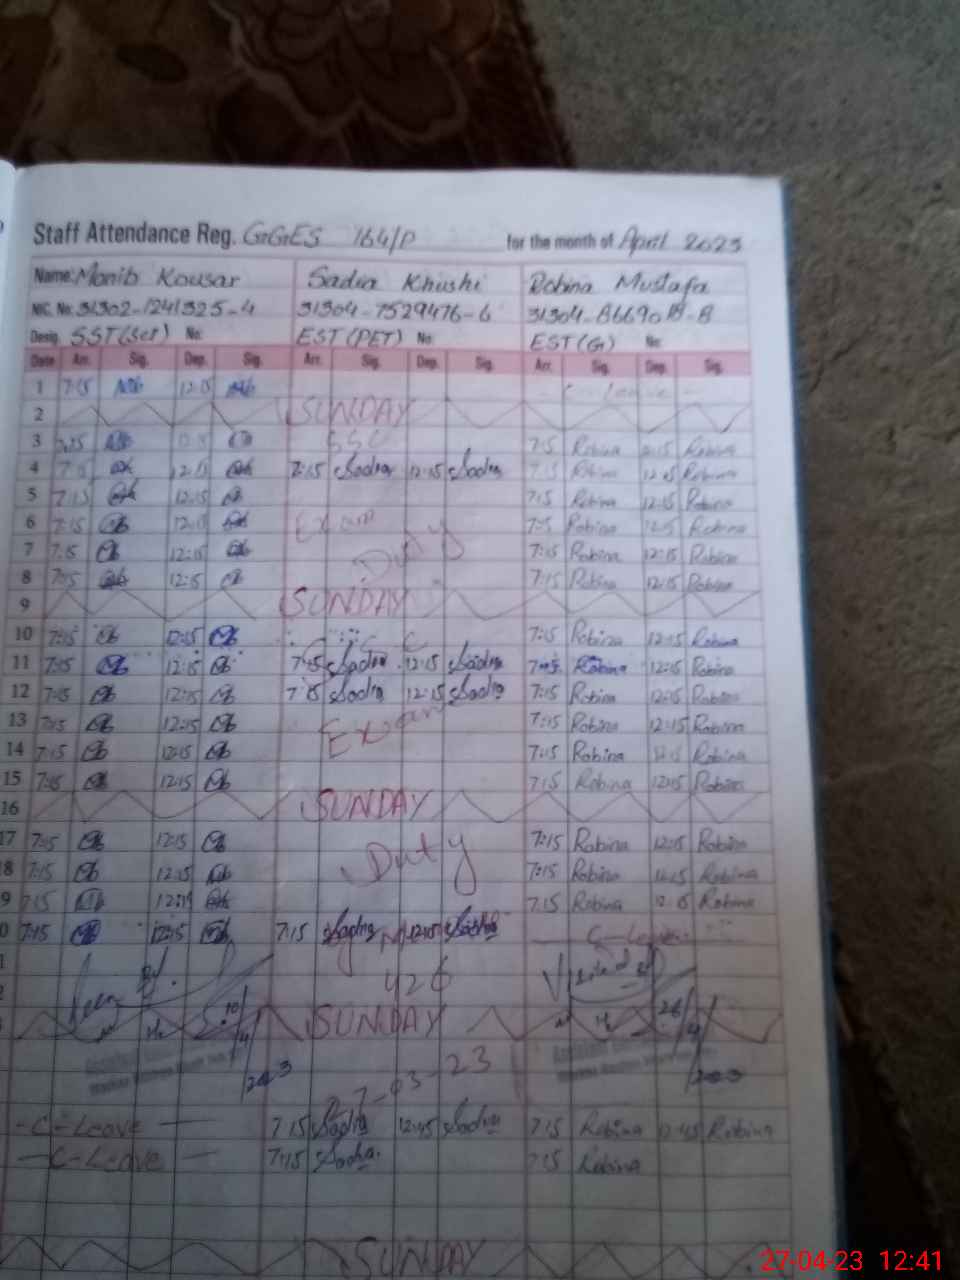 Staff Attendance Reg. GGES 164/P for the month of April 2023
Name: Monib Kousar Sadia Khushi Robina Mustafa
NIC. No: 31302-1241325-4 31304-7529476-6 31304-8669018-8
Desig. SST(Sci) No: EST(PET) No: EST(G) No:
Date Arr. Sig. Dep. Sig. Arr. Sig. Dep. Sig. Arr. Sig. Dep. Sig.
1 7:15 12:15 C-Leave
2 SUNDAY
3 SSC 7:15 Robina 12:15 Robina
4 7:15 12:15 7:15 Sadia 12:15 Sadia 7:15 Robina 12:15 Robina
5 7:15 12:15 7:15 Robina 12:15 Robina
6 7:15 12:15 Exam 7:15 Robina 12:15 Robina
7 7:15 12:15 Duty 7:15 Robina 12:15 Robina
8 7:15 12:15 7:15 Robina 12:15 Robina
9 SUNDAY
10 7:15 12:15 7:15 Robina 12:15 Robina
11 7:15 12:15 7:15 Sadia 12:15 Sadia 7:15 Robina 12:15 Robina
12 7:15 12:15 7:15 Sadia 12:15 Sadia 7:15 Robina 12:15 Robina
13 7:15 12:15 Exam 7:15 Robina 12:15 Robina
14 7:15 12:15 7:15 Robina 12:15 Robina
15 7:15 12:15 7:15 Robina 12:15 Robina
16 SUNDAY
17 7:15 12:15 Duty 7:15 Robina 12:15 Robina
18 7:15 12:15 7:15 Robina 12:15 Robina
9 7:15 12:15 7:15 Robina 12:15 Robina
0 7:15 12:15 7:15 Sadia 12:15 Sadia C-Leave
426
SUNDAY
2023
27-03-23
-C-Leave 7:15 Sadia 12:45 Sadia 7:15 Robina 12:45 Robina
C-Leave 7:15 Sadia 7:15 Robina
SUNDAY
27-04-23 12:41